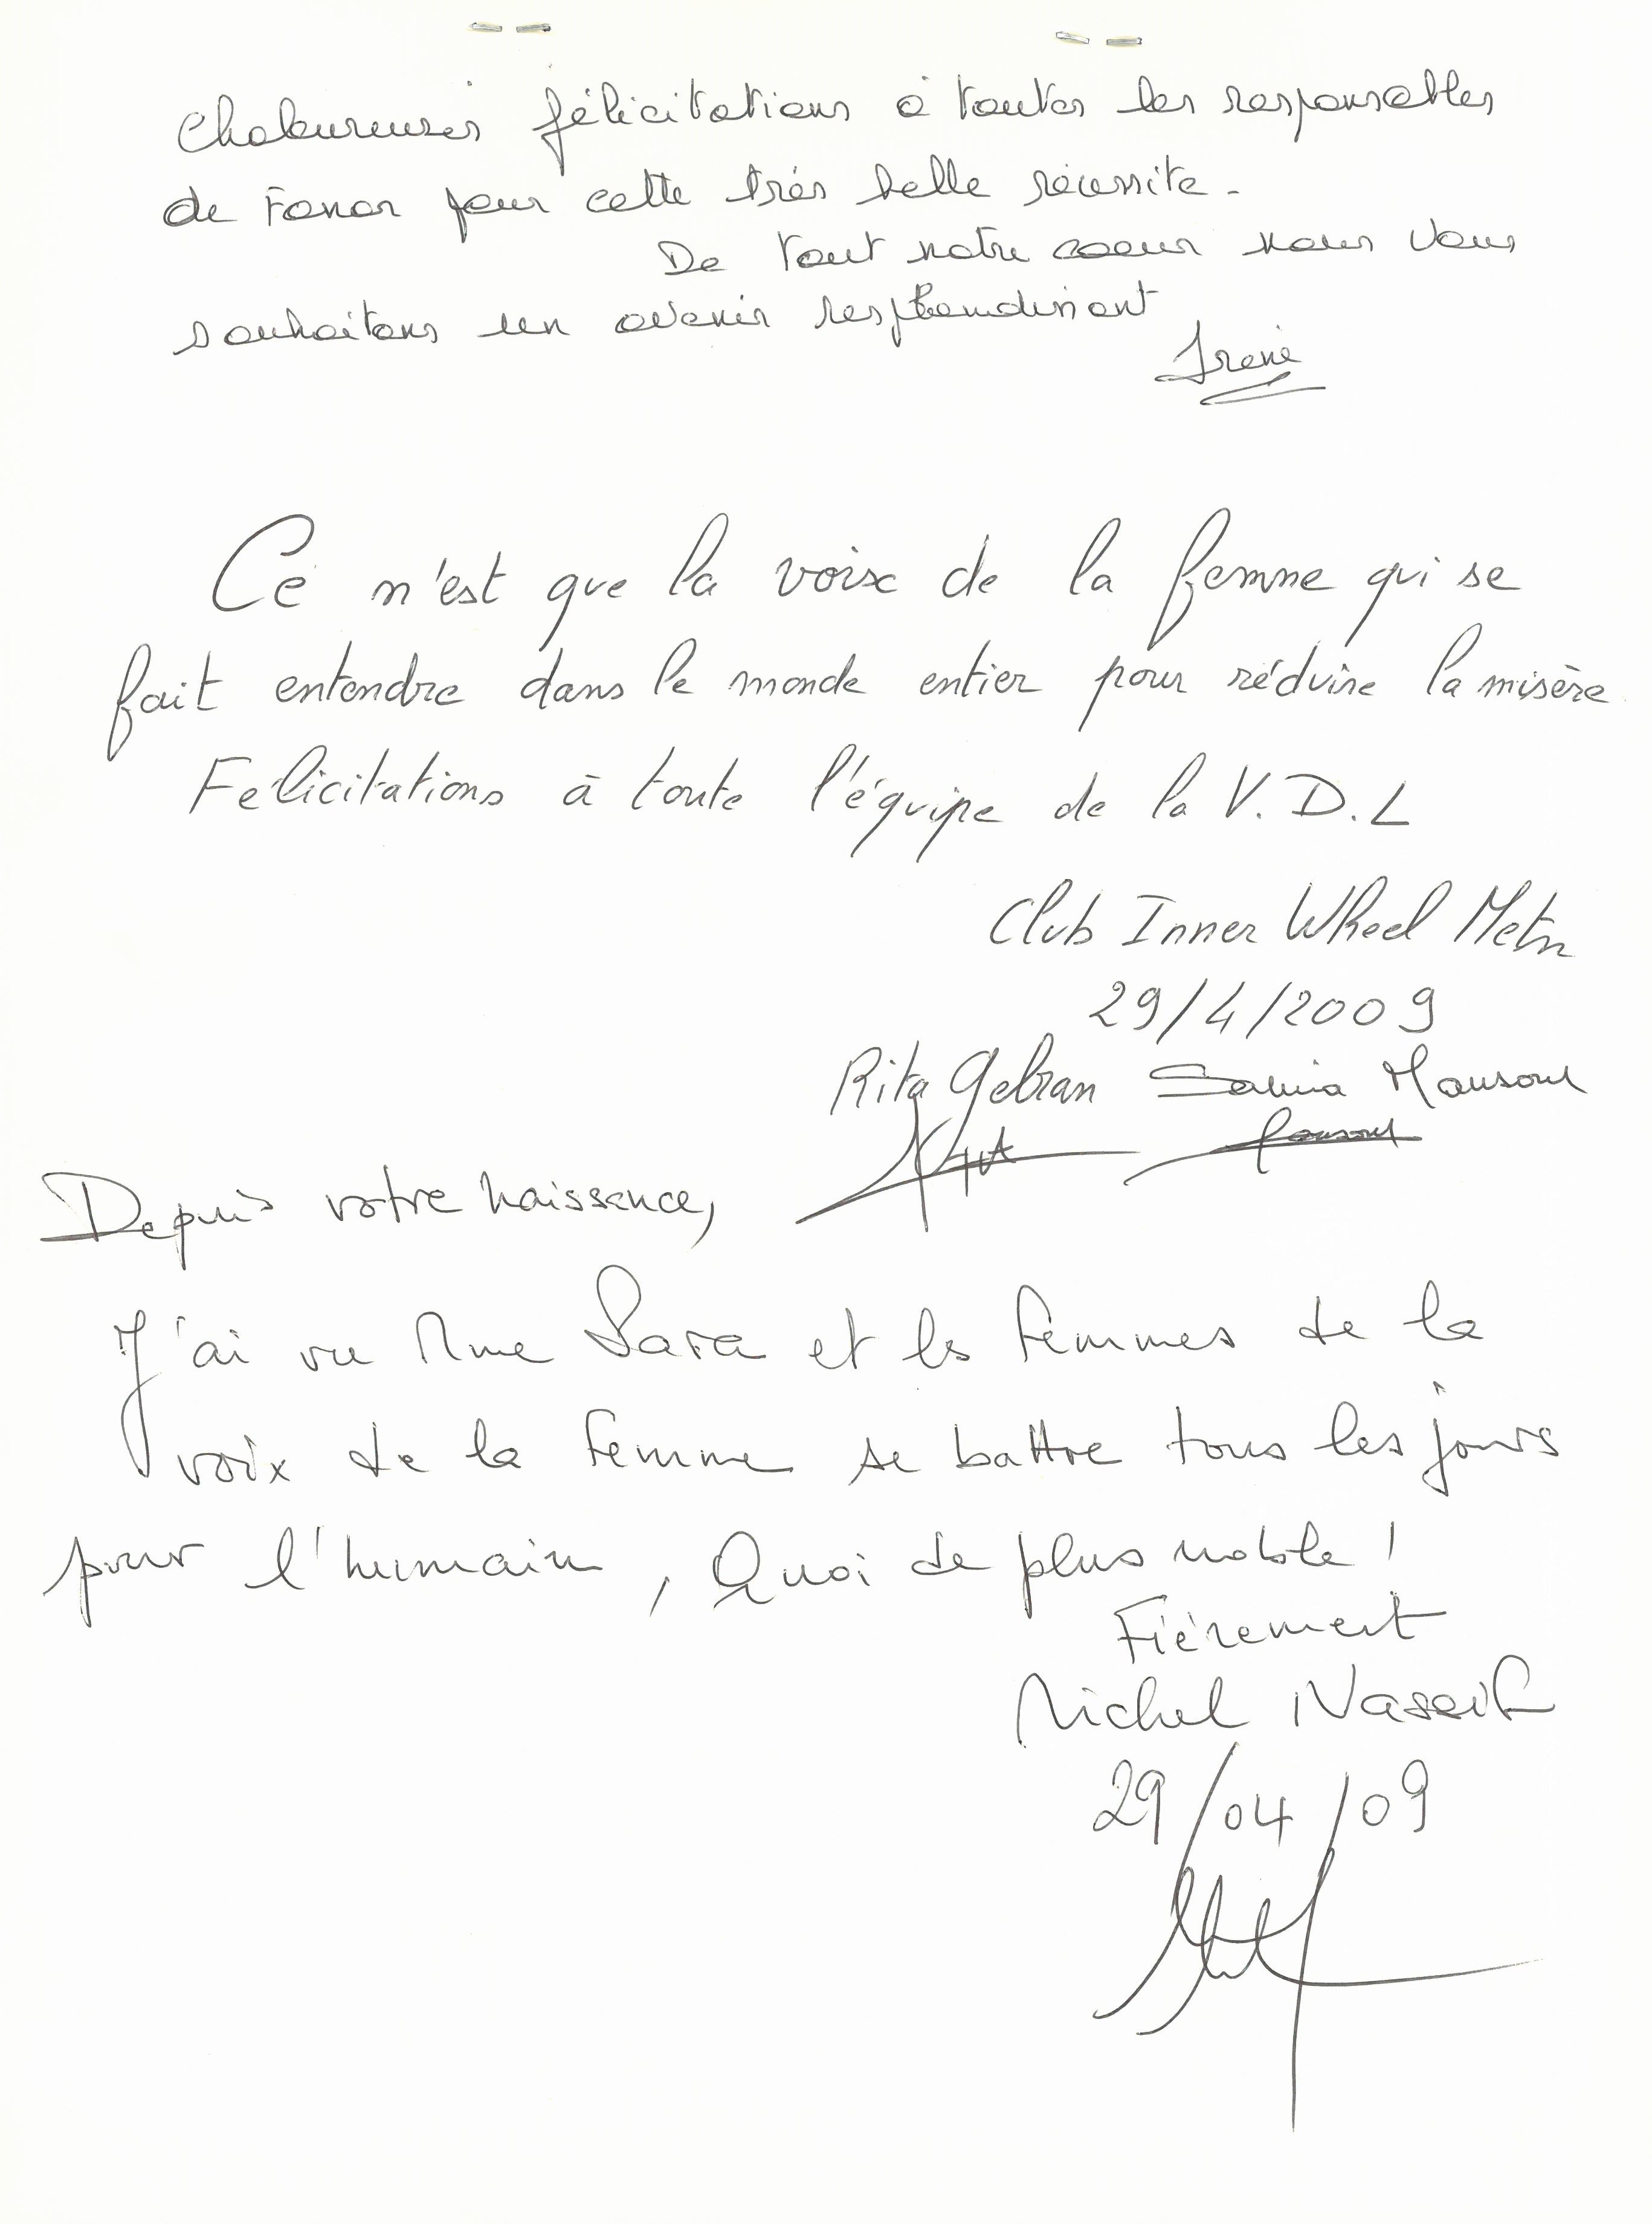 Chaleureuses félicitations à toutes les responsables
de Fanar pour cette très belle réussite.
De tout notre coeur nous vous
souhaitons un avenir resplendissant
Irène
Ce n'est que la voix de la femme qui se
fait entendre dans le monde entier pour réduire la misère.
Felicitations à toute l'équipe de la V.D.L
Club Inner Wheel Metn
29/4/2009
Rita Gebran Samia Mansour
Depuis votre naissance,
J'ai vu Mme Sara et les femmes de la
voix de la femme se battre tous les jours
pour l'humain, Quoi de plus noble !
Fièrement
Michel Nasseif
29/04/09